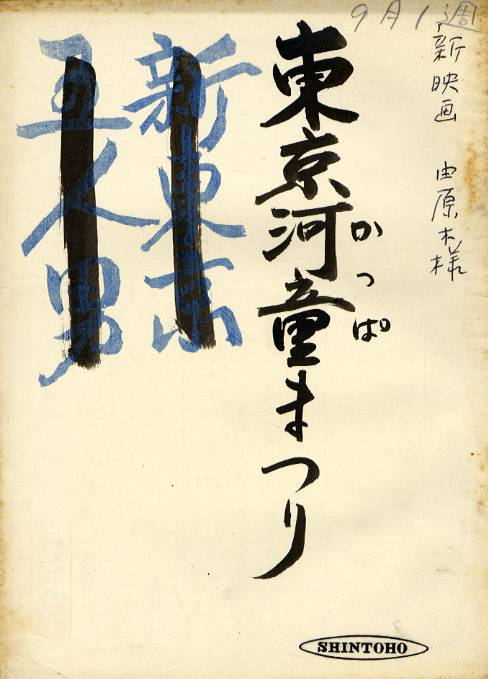 9月1週
新映画 由原木様
東京河童まつり
かっぱ
新東京
五人男
SHINTOHO